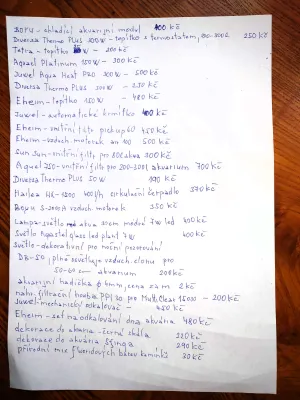 BOYU - chladící akvarijní modul 400 Kč
Diversa Thermo PLUS 300W - topítko s termostatem, 250 Kč
Tetra - topítko W - 200 Kč
Aquael Platinum 150W - 300 Kč
Juwel Aqua Heat PRO 300W - 500 Kč
Diversa Thermo PLUS 300W - 230 Kč
Eheim - topítko 150W - 480 Kč
Juwel - automatické krmítko 400 Kč
Eheim - vnitřní filtr pickup 60 450 Kč
Eheim - vzduch. motorek air 100 500 Kč
Sun Sun - vnitřní filtr pro 80l akva 300 Kč
Aquael 750 - vnitřní filtr pro 200-300l akvarium 700 Kč
Diversa Thermo PLUS 50W Kč
Hailea HX-1500 400l/h cirkulační čerpadlo 370 Kč
Boyu S-2000A vzduch. motorek 350 Kč
Lampa - světlo akva 30cm modré 7W led 400 Kč
Světlo Aquastel glass led plant 7W 400 Kč
Světlo - dekorativní pro noční pozorování
DB-50, plně osvětluje vzduch. clonu pro
50-60 cm akvarium 200 Kč
akvarijní hadička 6 mm, cena za m 2 Kč
náhr. filtrační houba PPI 30 pro Multi Clean 15000 - 200 Kč
Juwel - mechanický odkalovač - 450 Kč
Eheim - set na odkalování dna akvária 480 Kč
dekorace do akvária - černá skála 320 Kč
dekorace do akvária Sfinga 290 Kč
přírodní mix fluoridových barev kamínků 30 Kč